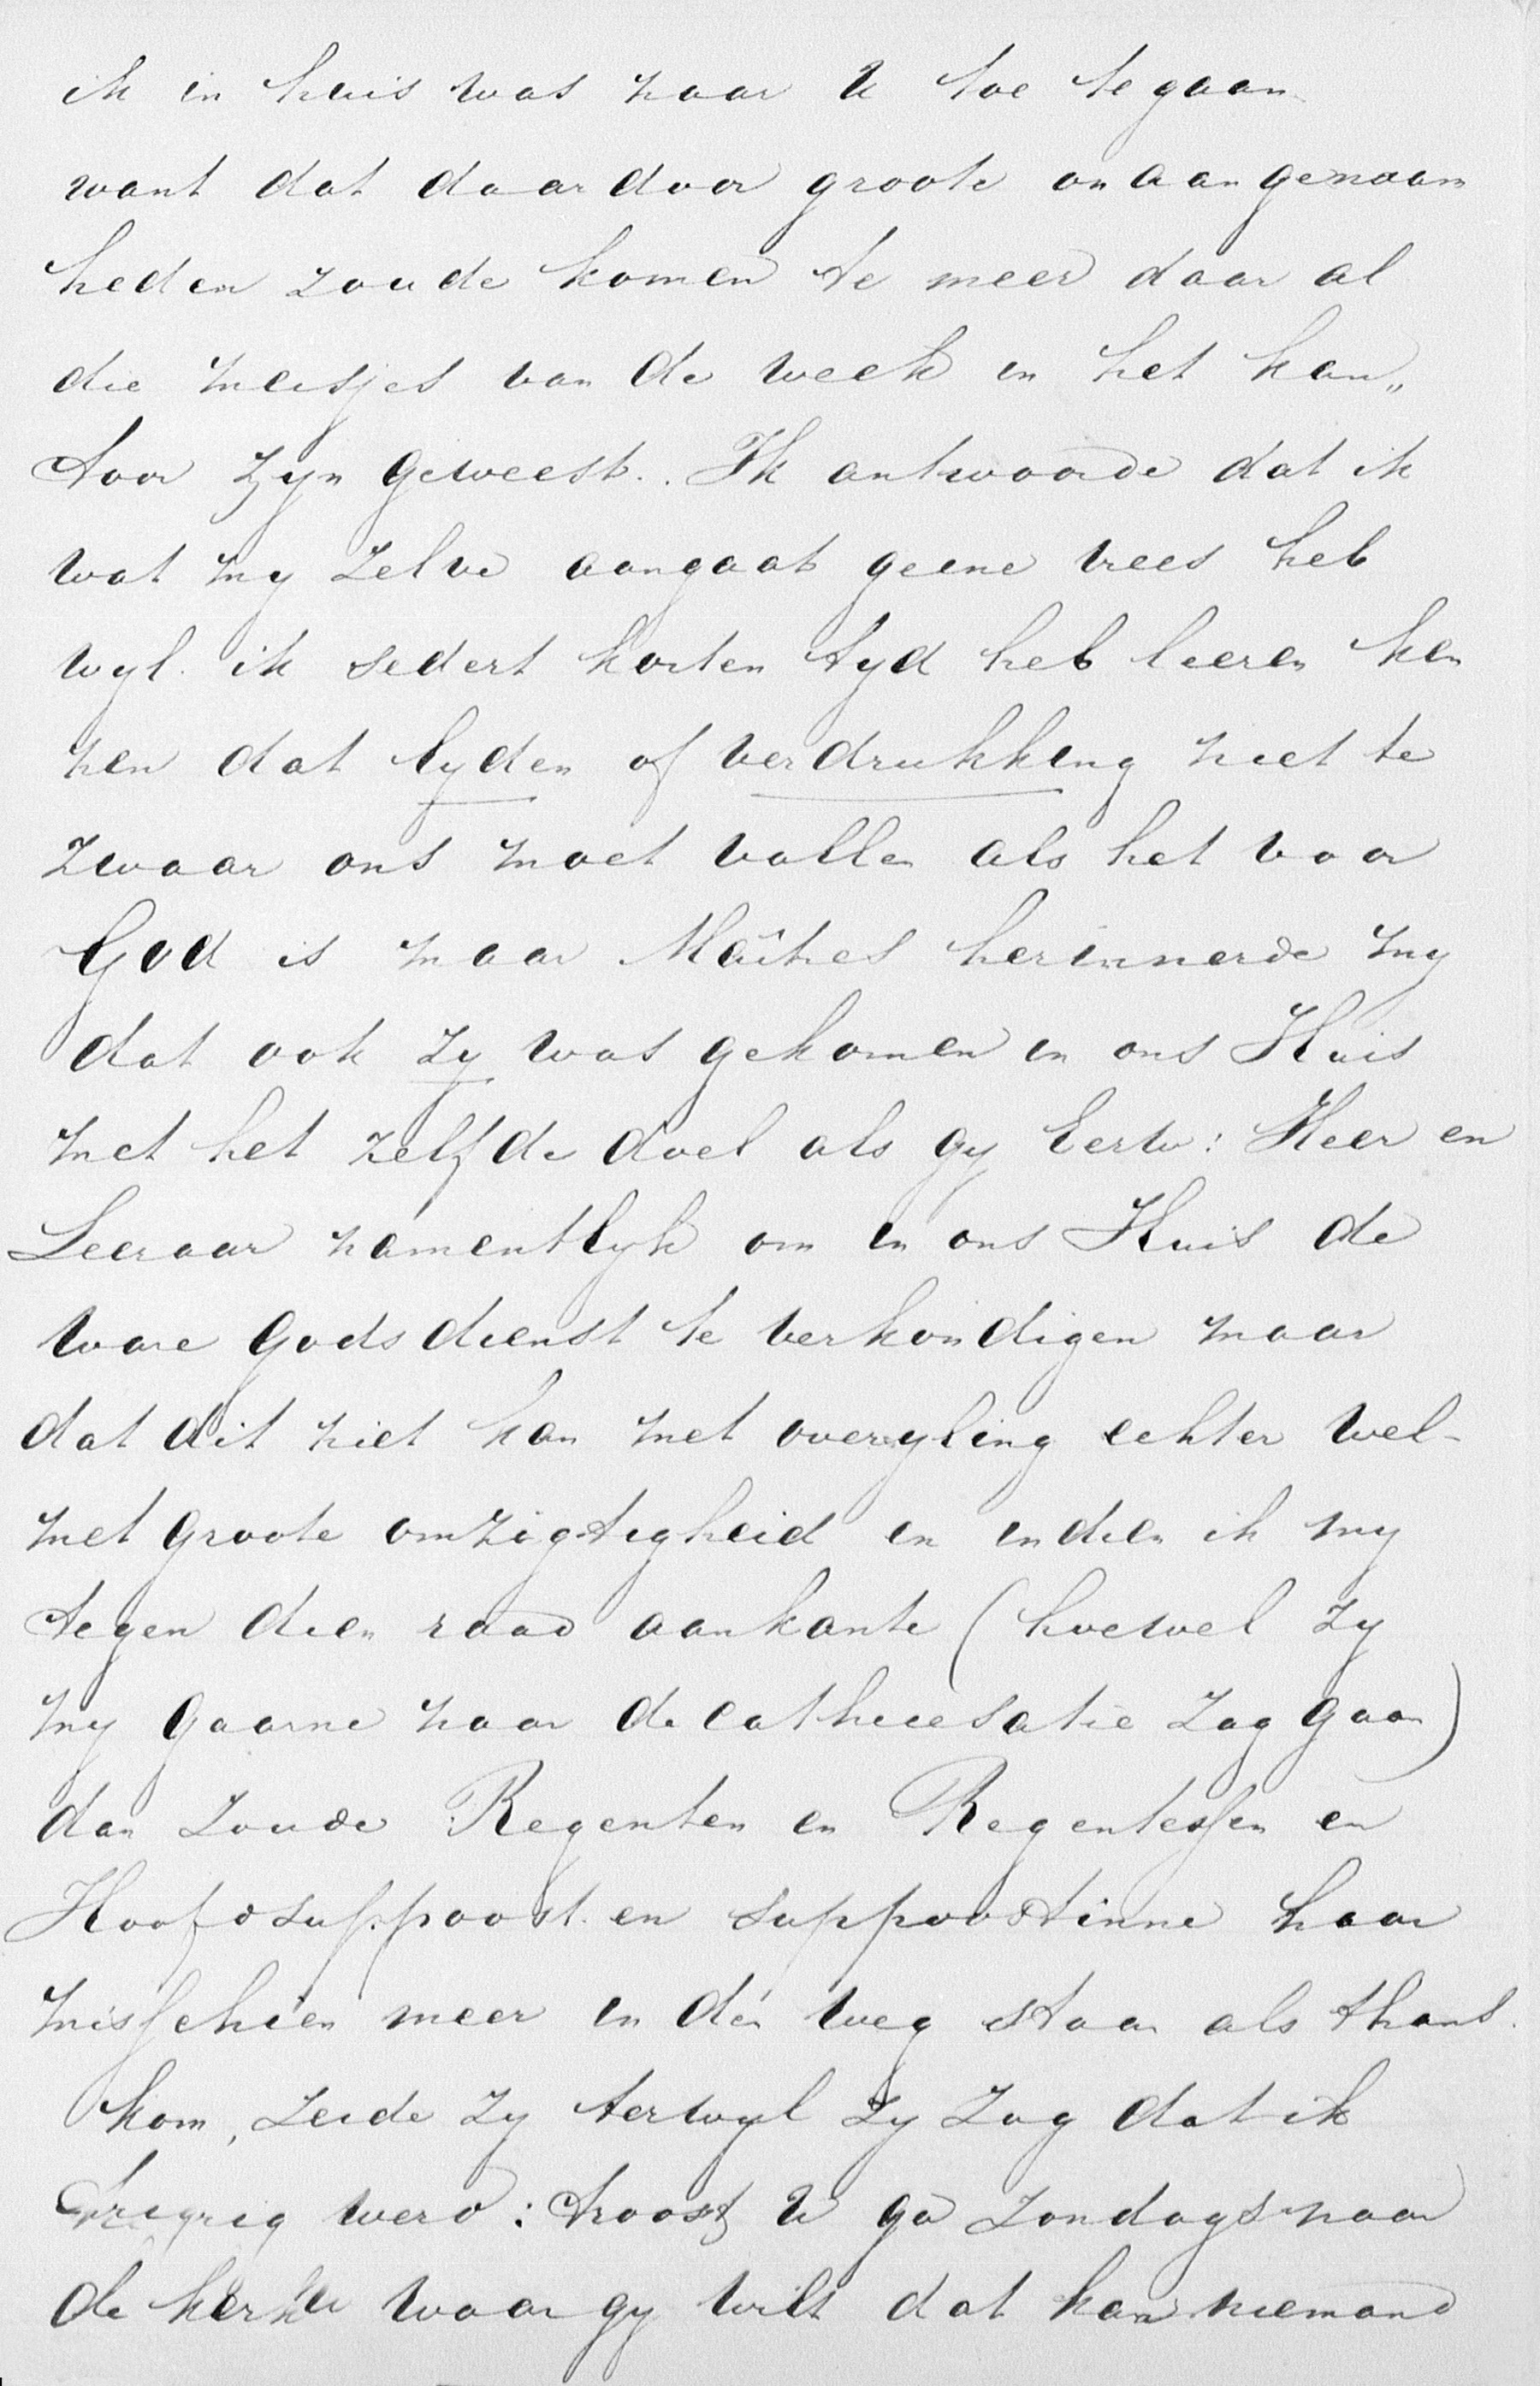 ik in huis was naar U toe te gaan
want dat daar door groote on aangenaam
heden zoude komen te meer daar al
die meisjes van de week in het kan„
toor zyn geweest. Ik antwoorde dat ik
wat my zelve aangaat geene vrees heb
wyl ik sedert korten tyd heb leeren ken
nen dat lyden of verdrukking niet te
zwaar ons moet vallen als het voor
God is maar Maîtres herinnerde my
dat ook zy was gekomen in ons Huis
met het zelfde doel als gy Eerw: Heer en
Leeraar namentlyk om in ons Huis de
ware Godsdienst te verkondigen maar
dat dit niet kan met overyling echter wel
met groote omzigtigheid en indien ik my
tegen dien raad aankante (hoewel zy
my gaarne naar de cathecesatie zag gaan)
dan zoude Regenten en Regentessen en
Hoofdsuppoost en suppoostinne haar
misschien meer in den weg staan als thans.
kom, zeide zy terwyl zy zag dat ik
treurig werd: troost U ga zondags naar
de kerke waar gy wilt dat kan niemand